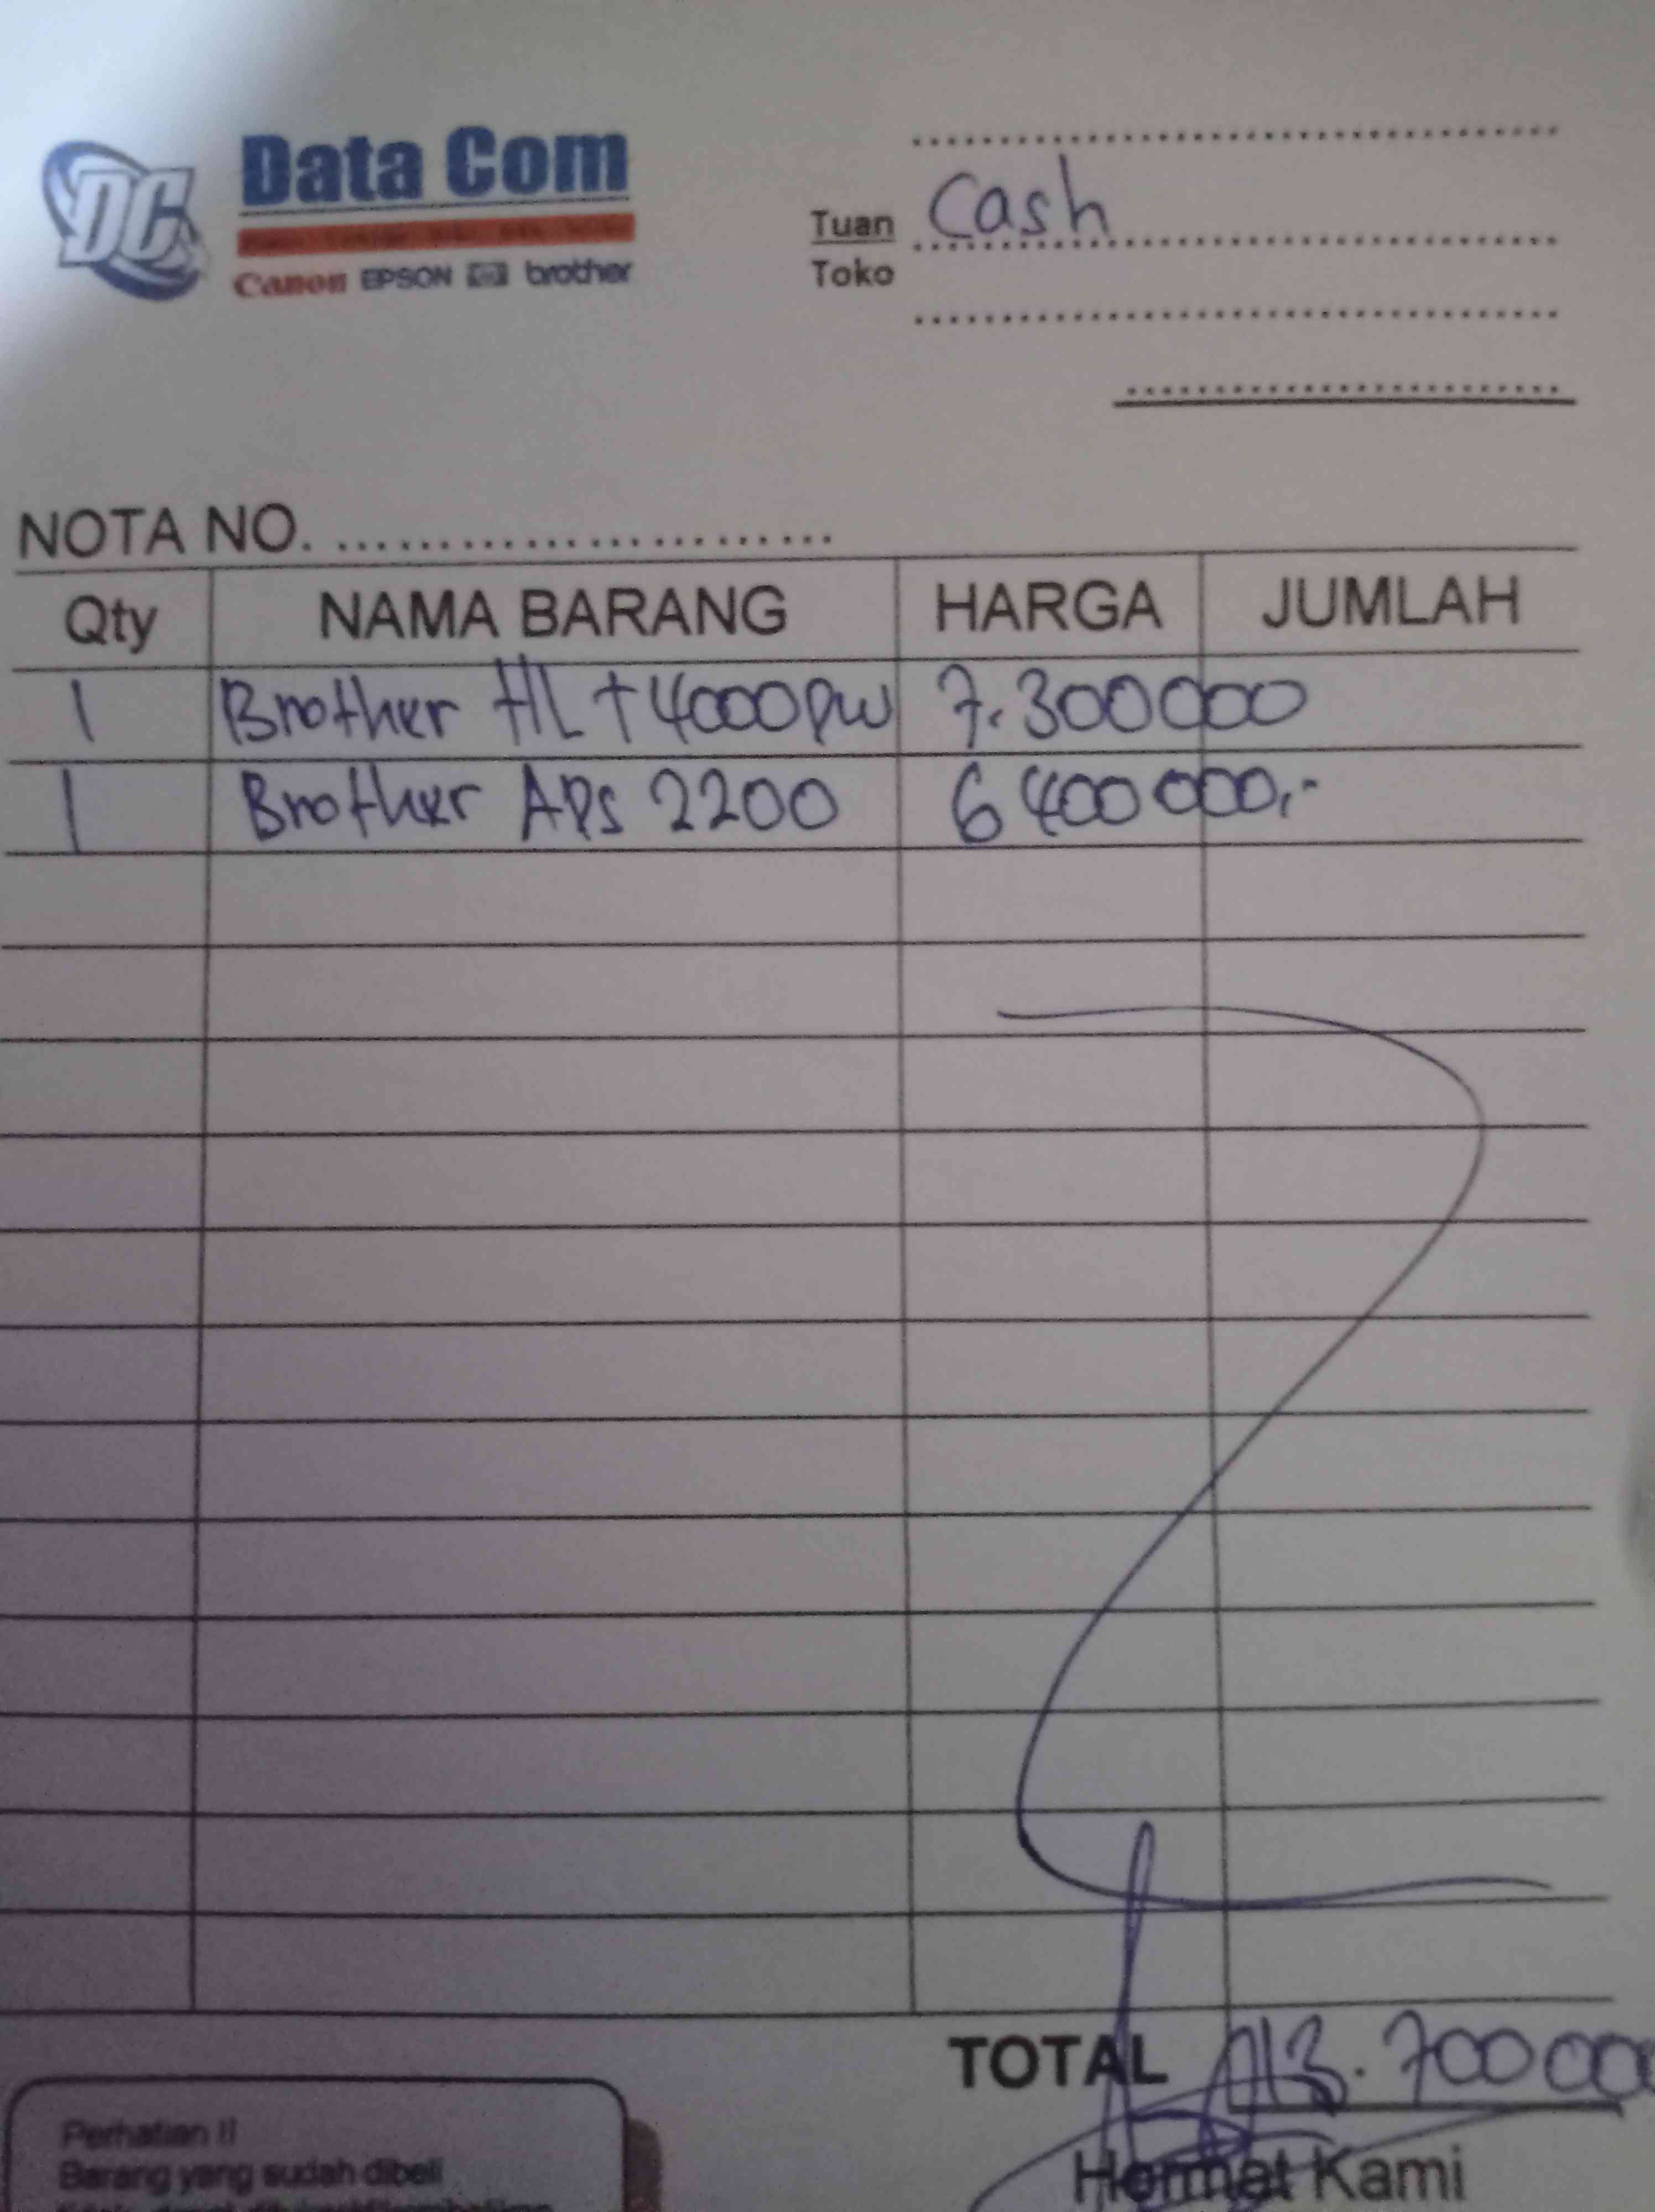 DC
Data Com
Canon EPSON hp brother
Tuan Cash
Toko
NOTA NO.
Qty NAMA BARANG HARGA JUMLAH
1 Brother HL T4000pw 7.300000
1 Brother ADs 2200 6400000,-
TOTAL 13.700000
Hormat Kami
Perhatian !!
Barang yang sudah dibeli